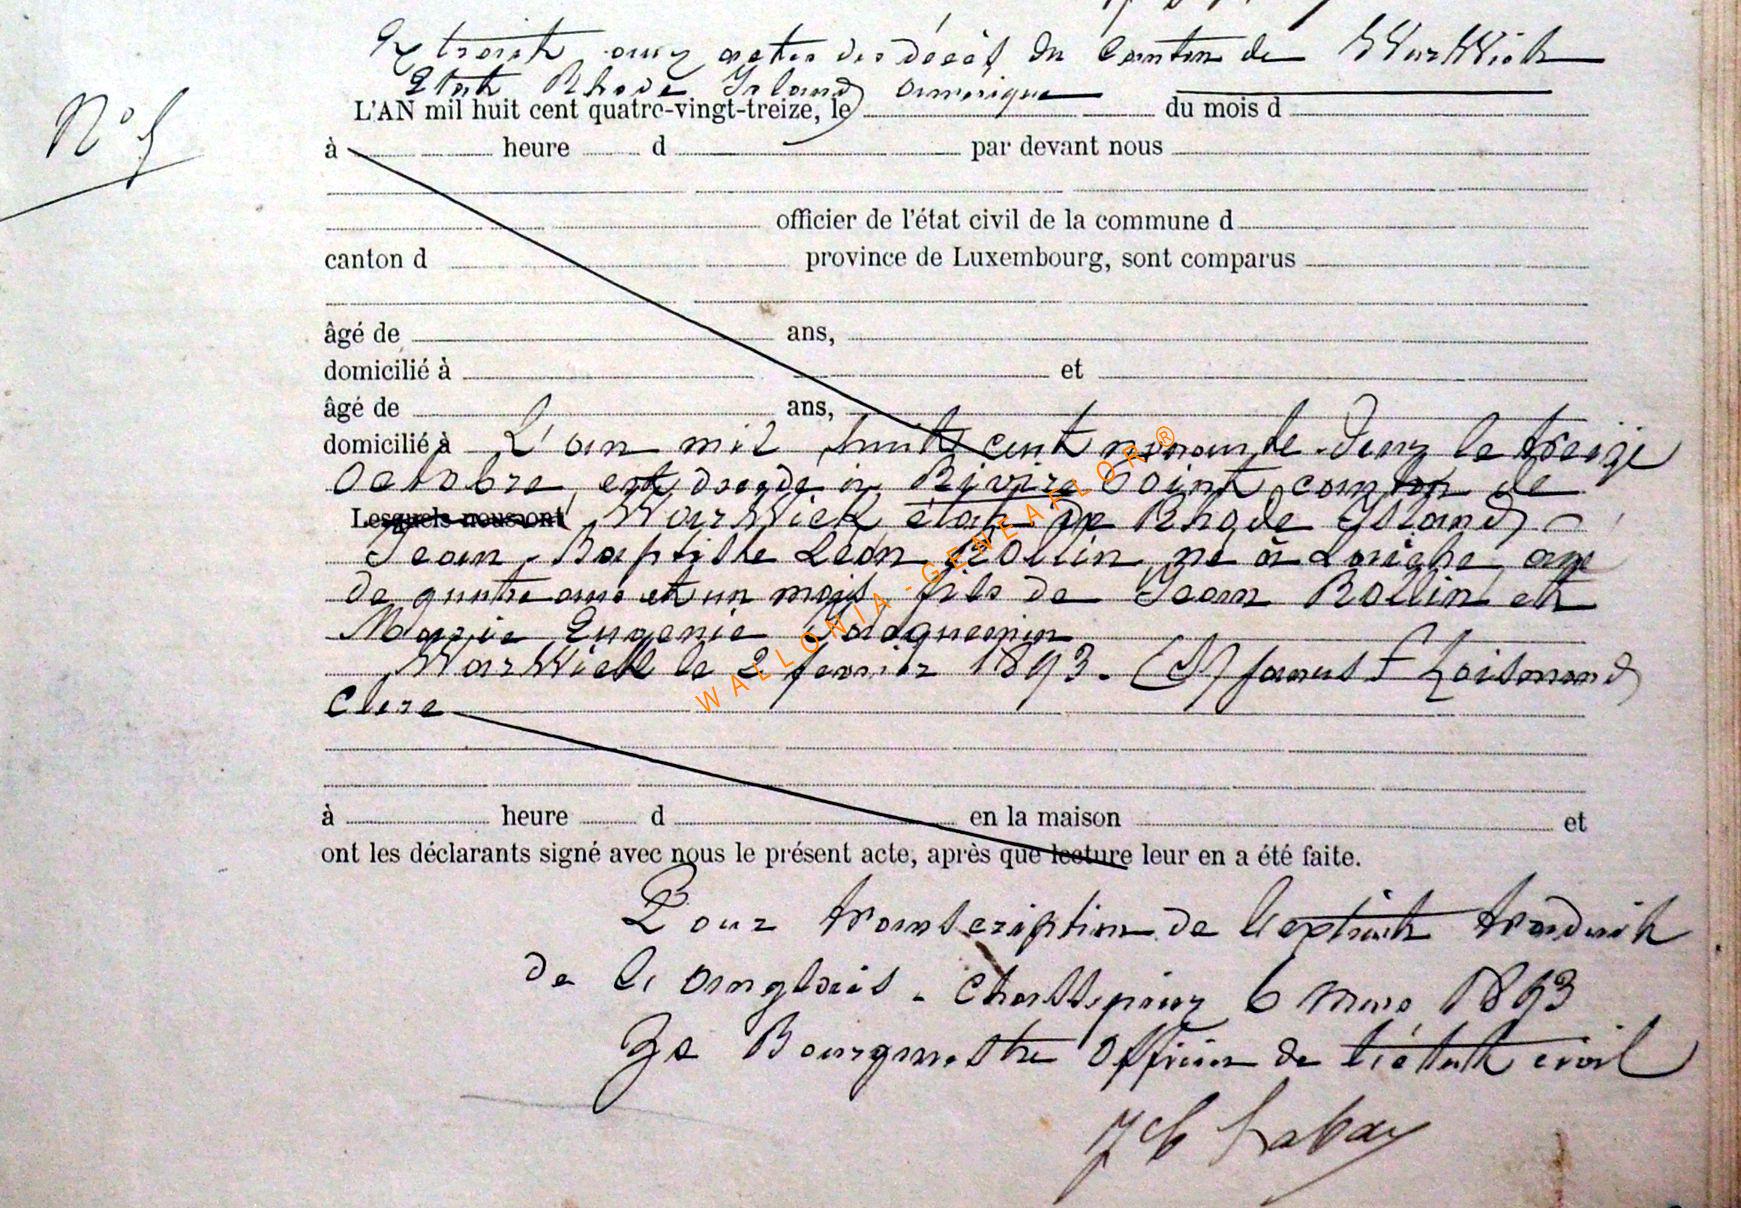 Extrait aux actes des décès du Canton de WarWich
Etat Rhode Island Amérique
N° 5
L'AN mil huit cent quatre-vingt-treize, le du mois d
à heure d par devant nous
officier de l'état civil de la commune d
canton d province de Luxembourg, sont comparus
âgé de ans,
domicilié à et
âgé de ans,
domicilié à L'an mil huit cent nonante-deux le treize
Octobre, est décédé à Rivire Point canton de
Lesquels nous ont WarWick état de Rhode Island
Jean-Baptiste Léon Rollin, né à Louighe, age
de quatre ans et un mois, fils de Jean Rollin et
Marie Eugenie Jacquemin
WarWick le 2 fevrier 1893. (S) James T
Clere
à heure d en la maison et
ont les déclarants signé avec nous le présent acte, après que lecture leur en a été faite.
Pour transcription de l'extrait traduit
de l'anglais. Chassepierre 6 mars 1893
Le Bourgmestre Officier de l'état civil
WALLONIA-GENEALOR®